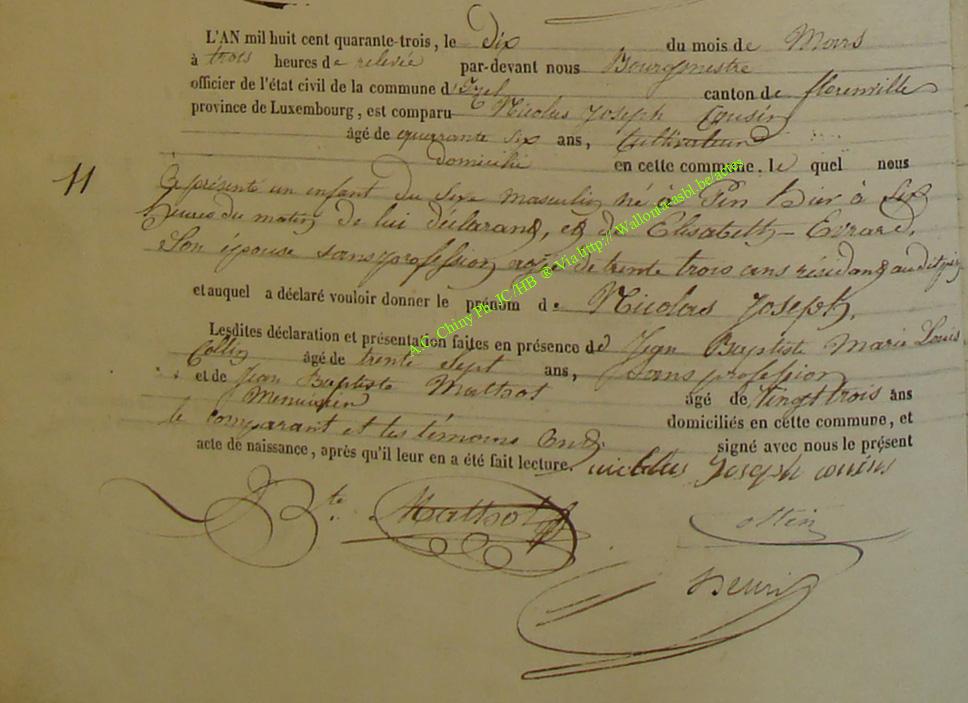 L'AN mil huit cent quarante-trois, le dix du mois de Mars
à trois heures de relevée par-devant nous Bourgmestre
officier de l'état civil de la commune d'Izel canton de florenville
province de Luxembourg, est comparu Nicolas Joseph Cousin
âgé de quarante six ans, Cultivateur
domicilié en cette commune. le quel nous
11
a présenté un enfant du Sexe masculin né à Pin hier à Six
heures du matin de lui déclarant, et de Elisabeth Evrard,
Son épouse sans profession agée de trente trois ans résidant audit pin
et auquel a déclaré vouloir donner le prénom de Nicolas Joseph,
Lesdites déclaration et présentation faites en présence de Jean Baptiste Marie Louis
Collin âgé de trente Sept ans, Sans profession
et de Jean Baptiste Mathot âgé de Vingt trois ans
Menuisier domiciliés en cette commune, et
le comparant et les témoins ont signé avec nous le présent
acte de naissance, après qu'il leur en a été fait lecture. nicolas Joseph cousin
Bte Mathot
Collin
Henri
A.C. Chiny Ph JC/HB ® Via http://Wallonia.asbl.be/actes